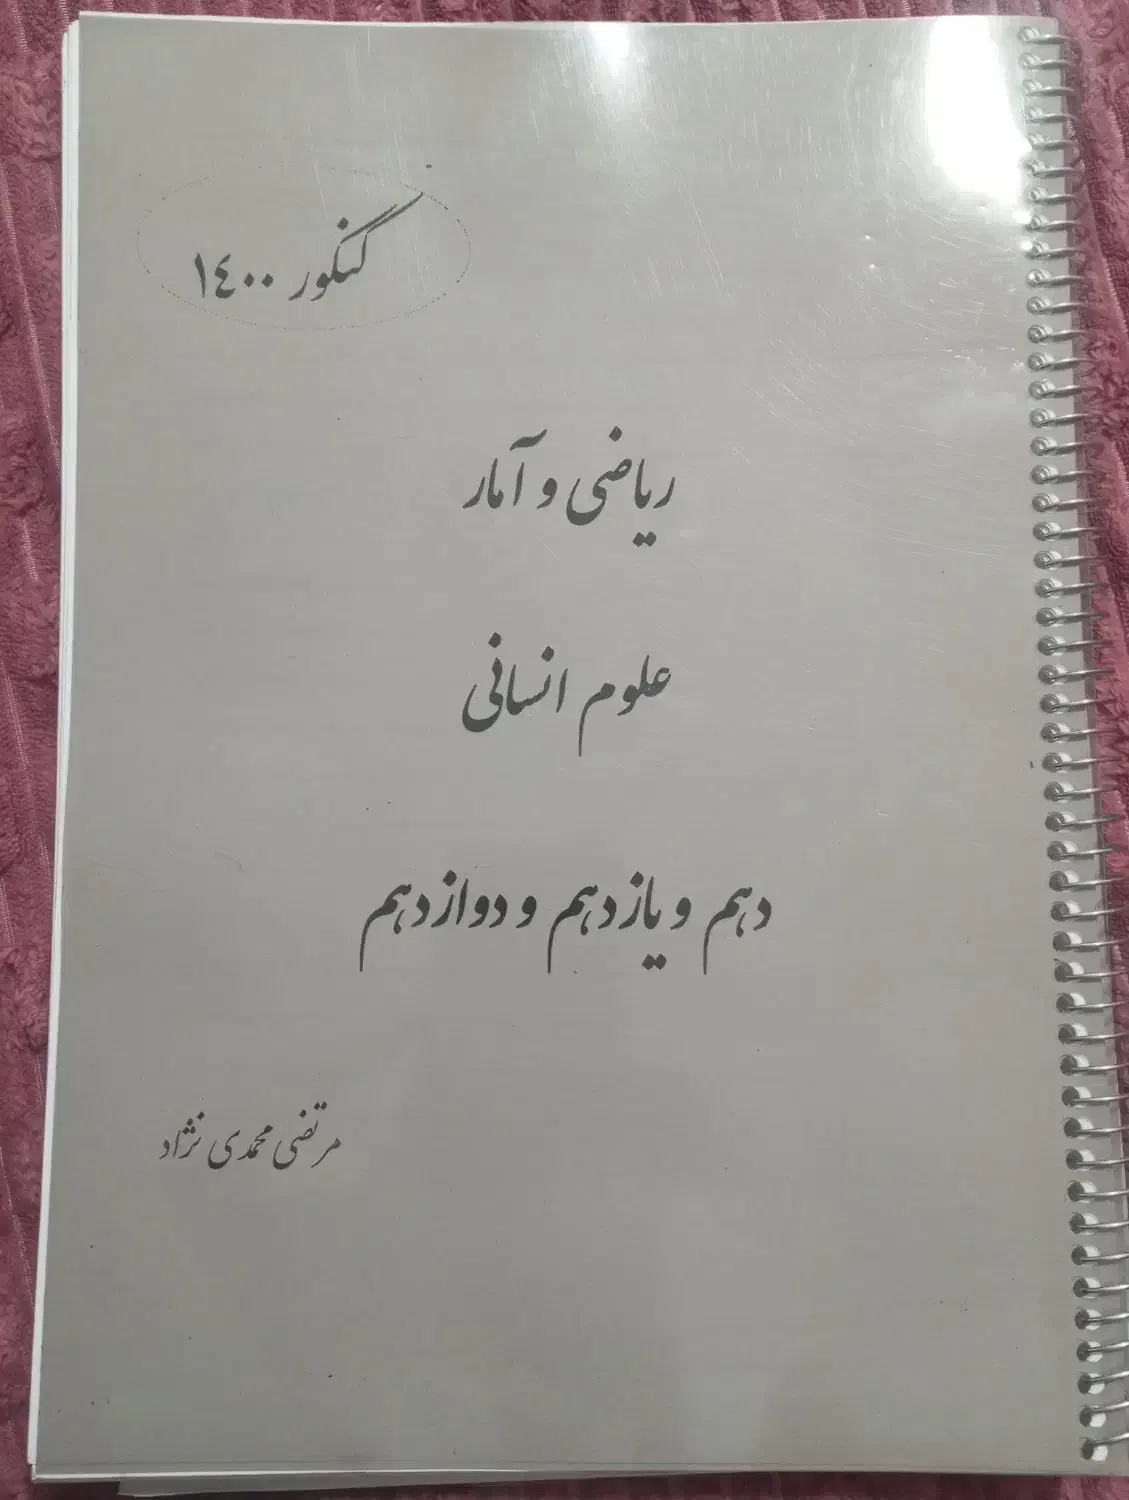 کنکور ۱۴۰۰
ریاضی و آمار
علوم انسانی
دهم و یازدهم و دوازدهم
مرتضی محمدی نژاد